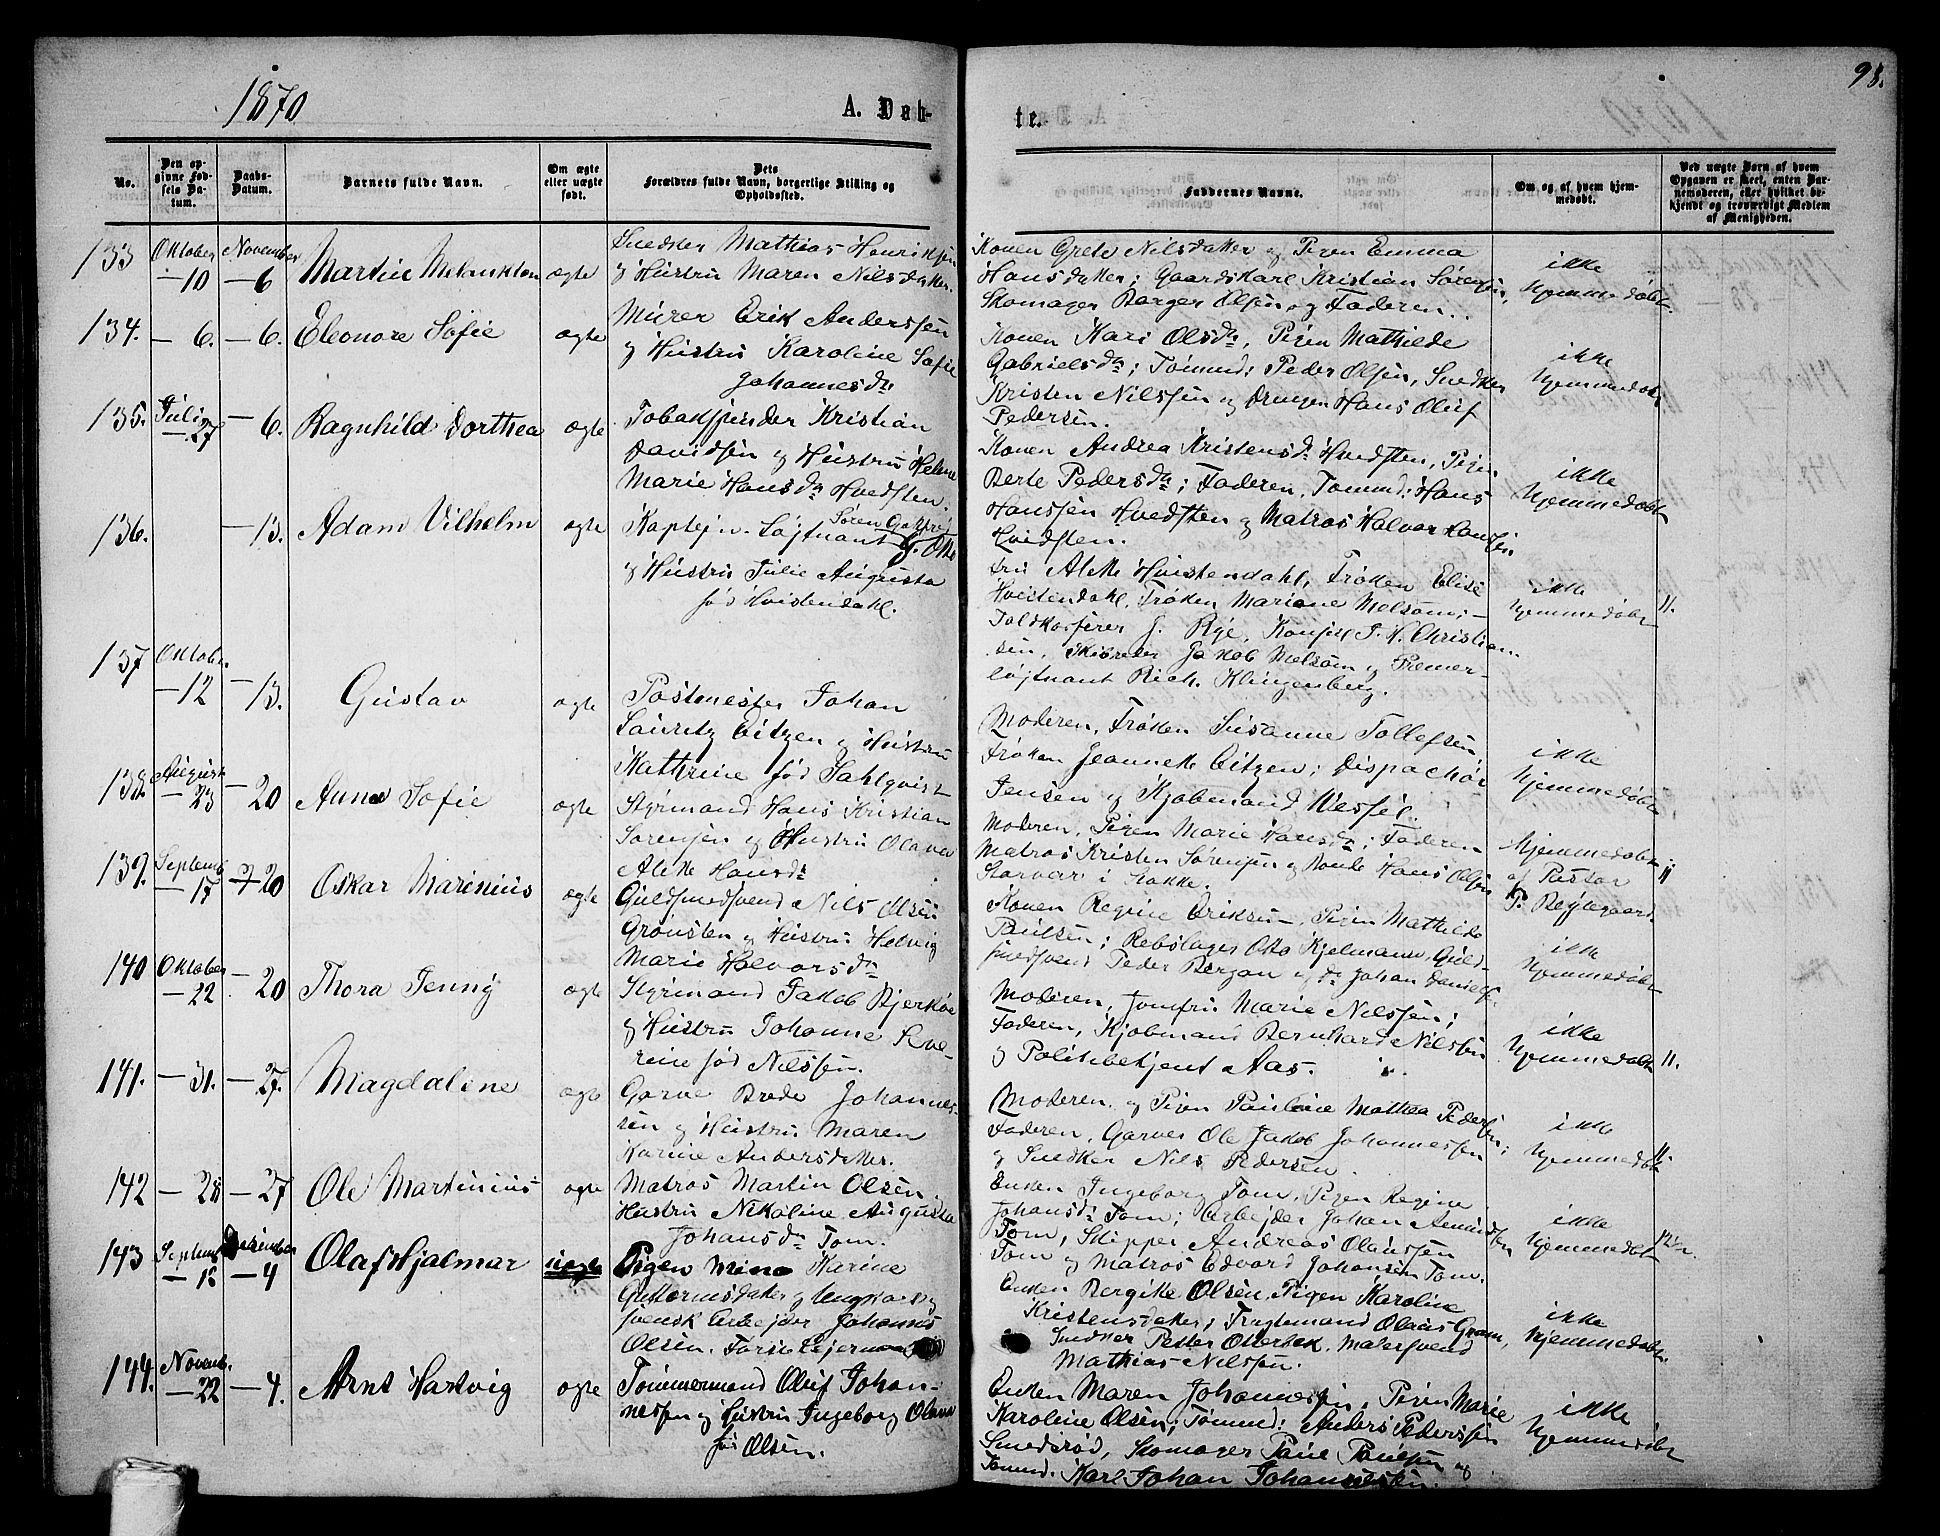 1870
A. Døb-
te.
98.
No.
Den op-
givne Fød-
sels Da-
tum.
Daabs-
Datum.
Barnets fulde Navn.
Om ægte
eller uægte
født.
Dets
Forældres fulde Navn, borgerlige Stilling og
Opholdssted.
Faddernes Navne.
Om og af hvem hjem-
medøbt.
Ved uægte Børn af hvem
Opgaven er skeet, enten Bar-
nemoderen, eller hvilket be-
kjendt og troværdigt Medlem
af Menigheden.
133 Oktober 10 November 6 Martin Melankton ægte
Snedker Mathias Henriksen
og Hustru Maren Nilsdatter.
Konen Grete Nilsdatter og Pigen Emma
Hansdatter; Gaardskarl Kristian Sørensen,
Skomager Borger Olsen og Faderen.
ikke
hjemmedøbt.
134. — 6. — 6. Eleonore Sofie ægte
Murer Erik Anderssen
og Hustru Karoline Sofie
Johannesdr
Konen Kari Olsdr, Pigen Mathilde
Gabrielsdr; Tømmd: Peder Olsen, Snedker
Kristen Nilssen og Drengen Hans Oluf
Pedersen.
ikke
hjemmedøbt
135. Juli 27 — 6. Ragnhild Dorthea ægte
Tobakspinder Kristian
Davidsen og Hustru Helene
Marie Hansdr Hvedsten.
Konen Andrea Kristensdr Hvedsten, Pigen
Berte Pedersdr; Faderen, Tømmd: Hans
Hanssen Hvedsten og Matros Halvor Hanssen
Hvidsten.
ikke
hjemmedøbt
136. — 13. Adam Vilhelm ægte
Kaptejn-Løjtnant Søren Gotfred
G. Otto
og Hustru Julie Augusta
født Hvistendahl.
Fru Alette Hvistendahl, Frøken Elise
Hvistendahl, Frøken Mariane Melsom;
Toldkasserer J. Rye, Konsul J. H. Christian-
sen, Skibsreder Jakob Melsom og Premier-
løjtnant Rich. Klingenberg.
ikke
hjemmedøbt
11.
137 Oktober — 12 — 13. Gustav ægte
Postmester Johan
Lauritz Eitzen og Hustru
Kathrine fød Sahlqvist
Moderen, Frøken Susanne Tollefsen,
Frøken Jeannette Eitzen; Dispachør
Jensen og Kjøbmand Wessel.
ikke
hjemmedøbt
138. August — 23 — 20 Anna Sofie ægte
Styrmand Hans Kristian
Sørensen og Hustru Olava
Alette Hansdr
Moderen, Pigen Marie Hansdr; Faderen
Matros Kristen Sørensen og Bonde Hans Olsen
Storveri i Stokke.
Hjemmedøbt
af Pastor
P. Bejlegaard
11
139. Septemb — 17 — 20 Oskar Marinius ægte
Guldsmedsvend Nils Olsen
Grønsten og Hustru Helvig
Marie Halvorsdr
Konen Regine Eriksen, Pigen Mathilde
Paulsen; Rebslager Otto Kjelmann, Guld-
smedsvend Peder Bergan og do Johan Daniels
ikke
hjemmedøbt
140 Oktober — 22 — 20 Thora Jenny ægte
Styrmand Jakob Bjerkøe
og Hustru Johanne Seve-
rine fød Nilssen.
Moderen, Jomfru Marie Nilssen;
Faderen, Kjøbmand Bernhard Nilssen
og Politibetjent Aas.
ikke
hjemmedøbt
11.
141. — 31. — 27. Magdaline ægte
Garver Brede Johannes-
sen og Hustru Maren
Karine Andersdatter.
Moderen og Pigen Pauline Mathea Pedersen;
Faderen, Garver Ole Jakob Johannessen
og Snedker Nils Pedersen.
ikke
hjemmedøbt
11.
142 — 28 — 27 Ole Martinius ægte
Matros Martin Olsen og
Hustru Nikoline Augusta
Johansdr Tom.
Enken Ingeborg Tom, Pigen Regine
Johansdr Tom; Arbejder Johan Amundsen
Tom, Skipper Andreas Olaussen
Tom og Matros Edvard Johansen Tom.
ikke
hjemmedøbt
143 Septemb — 18 December — 4 Olaf Hjalmar uægte
Pigen Mina Karine
Guttormsdatter og Ungkarl og
svensk Arbejder Johannes
Olsen. Første Lejermaal
Enken Bergitte Olsen, Pigen Karoline
Kristensdatter; Fragtemand Olaus Gram,
Snedker Petter Otterbek, Malersvend
Mathias Nilssen.
ikke
hjemmedøbt.
144. Novemb. — 22 — 4. Arnt Hartvig ægte
Tømmermand Oluf Johan-
nessen og Hustru Ingeborg Olava
fød Olsen.
Enken Maren Johannessen, Pigen Marie
Karoline Olsen; Tømmd: Anders Pederssen
Smedsrød, Skomager Paul Paulsen og
Tømmd. Karl Johan Johannessen.
ikke
hjemmedøbt